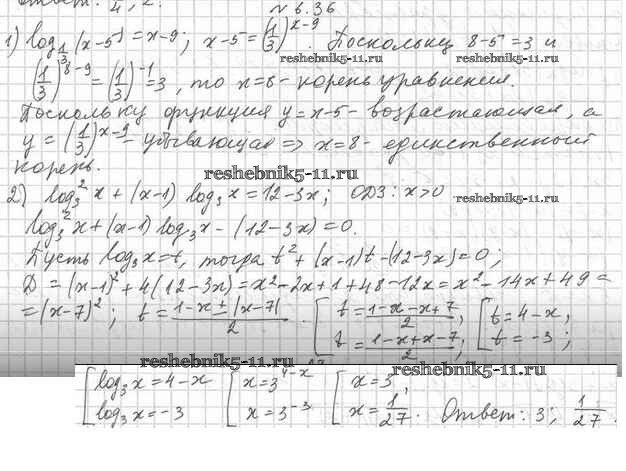 № 6.36
1) log_{1/3}(x-5) = x-9; x-5 = (1/3)^{x-9}. Поскольку 8-5=3 и
(1/3)^{8-9} = (1/3)^{-1} = 3, то x=8 - корень уравнения.
Поскольку функция y=x-5 - возрастающая, а
y = (1/3)^{x-9} - убывающая => x=8 - единственный
корень.
reshebnik5-11.ru
2) log_3^2 x + (x-1) log_3 x = 12-3x; ОДЗ: x>0
reshebnik5-11.ru
log_3^2 x + (x-1) log_3 x - (12-3x) = 0.
Пусть log_3 x = t, тогда t^2 + (x-1)t - (12-3x) = 0;
D = (x-1)^2 + 4(12-3x) = x^2 - 2x + 1 + 48 - 12x = x^2 - 14x + 49 =
= (x-7)^2; t = (1-x ± |x-7|)/2. [ t = (1-x-x+7)/2, t = (1-x+x-7)/2; [ t = 4-x, t = -3;
reshebnik5-11.ru
reshebnik5-11.ru
[ log_3 x = 4-x log_3 x = -3 [ x = 3^{4-x} x = 3^{-3} [ x = 3, x = 1/27. Ответ: 3; 1/27.